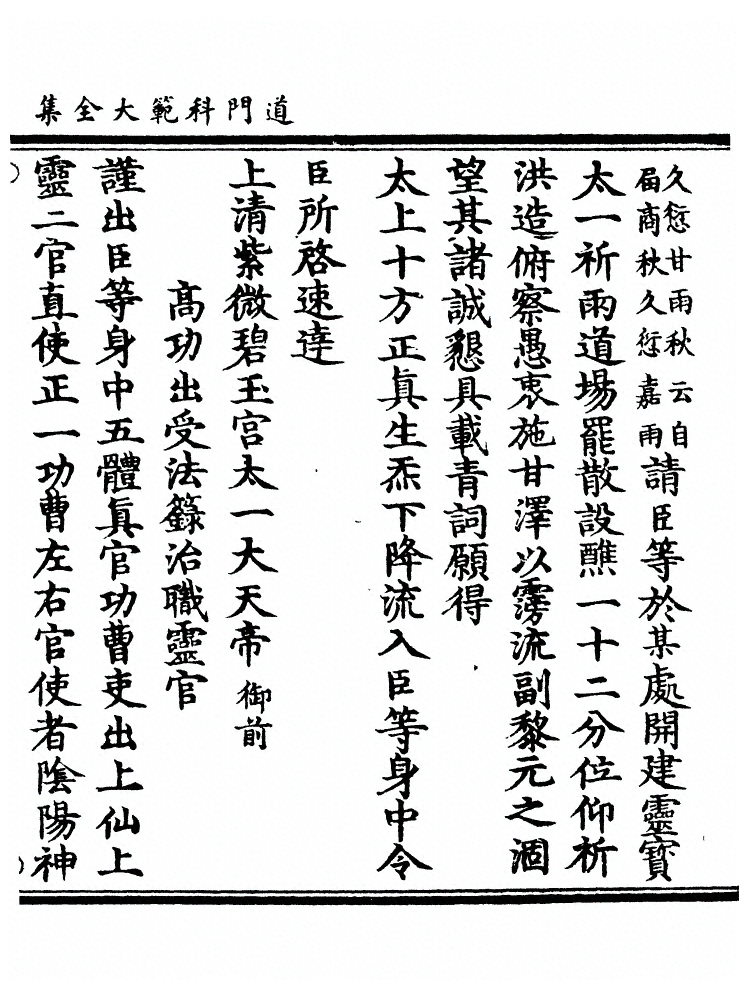 道門科範大全集
久愆甘雨秋云自
屆商秋久愆嘉雨
請臣等於某處開建靈寶
太一祈雨道場罷散設醮一十二分位仰祈
洪造俯察愚衷施甘澤以霶流副黎元之涸
望其諸誠懇具載青詞願得
太上十方正眞生炁下降流入臣等身中令
臣所啓速達
上清紫微碧玉宫太一大天帝御前
高功出受法籙治職靈官
謹出臣等身中五體眞官功曹吏出上仙上
靈二官直使正一功曹左右官使者陰陽神